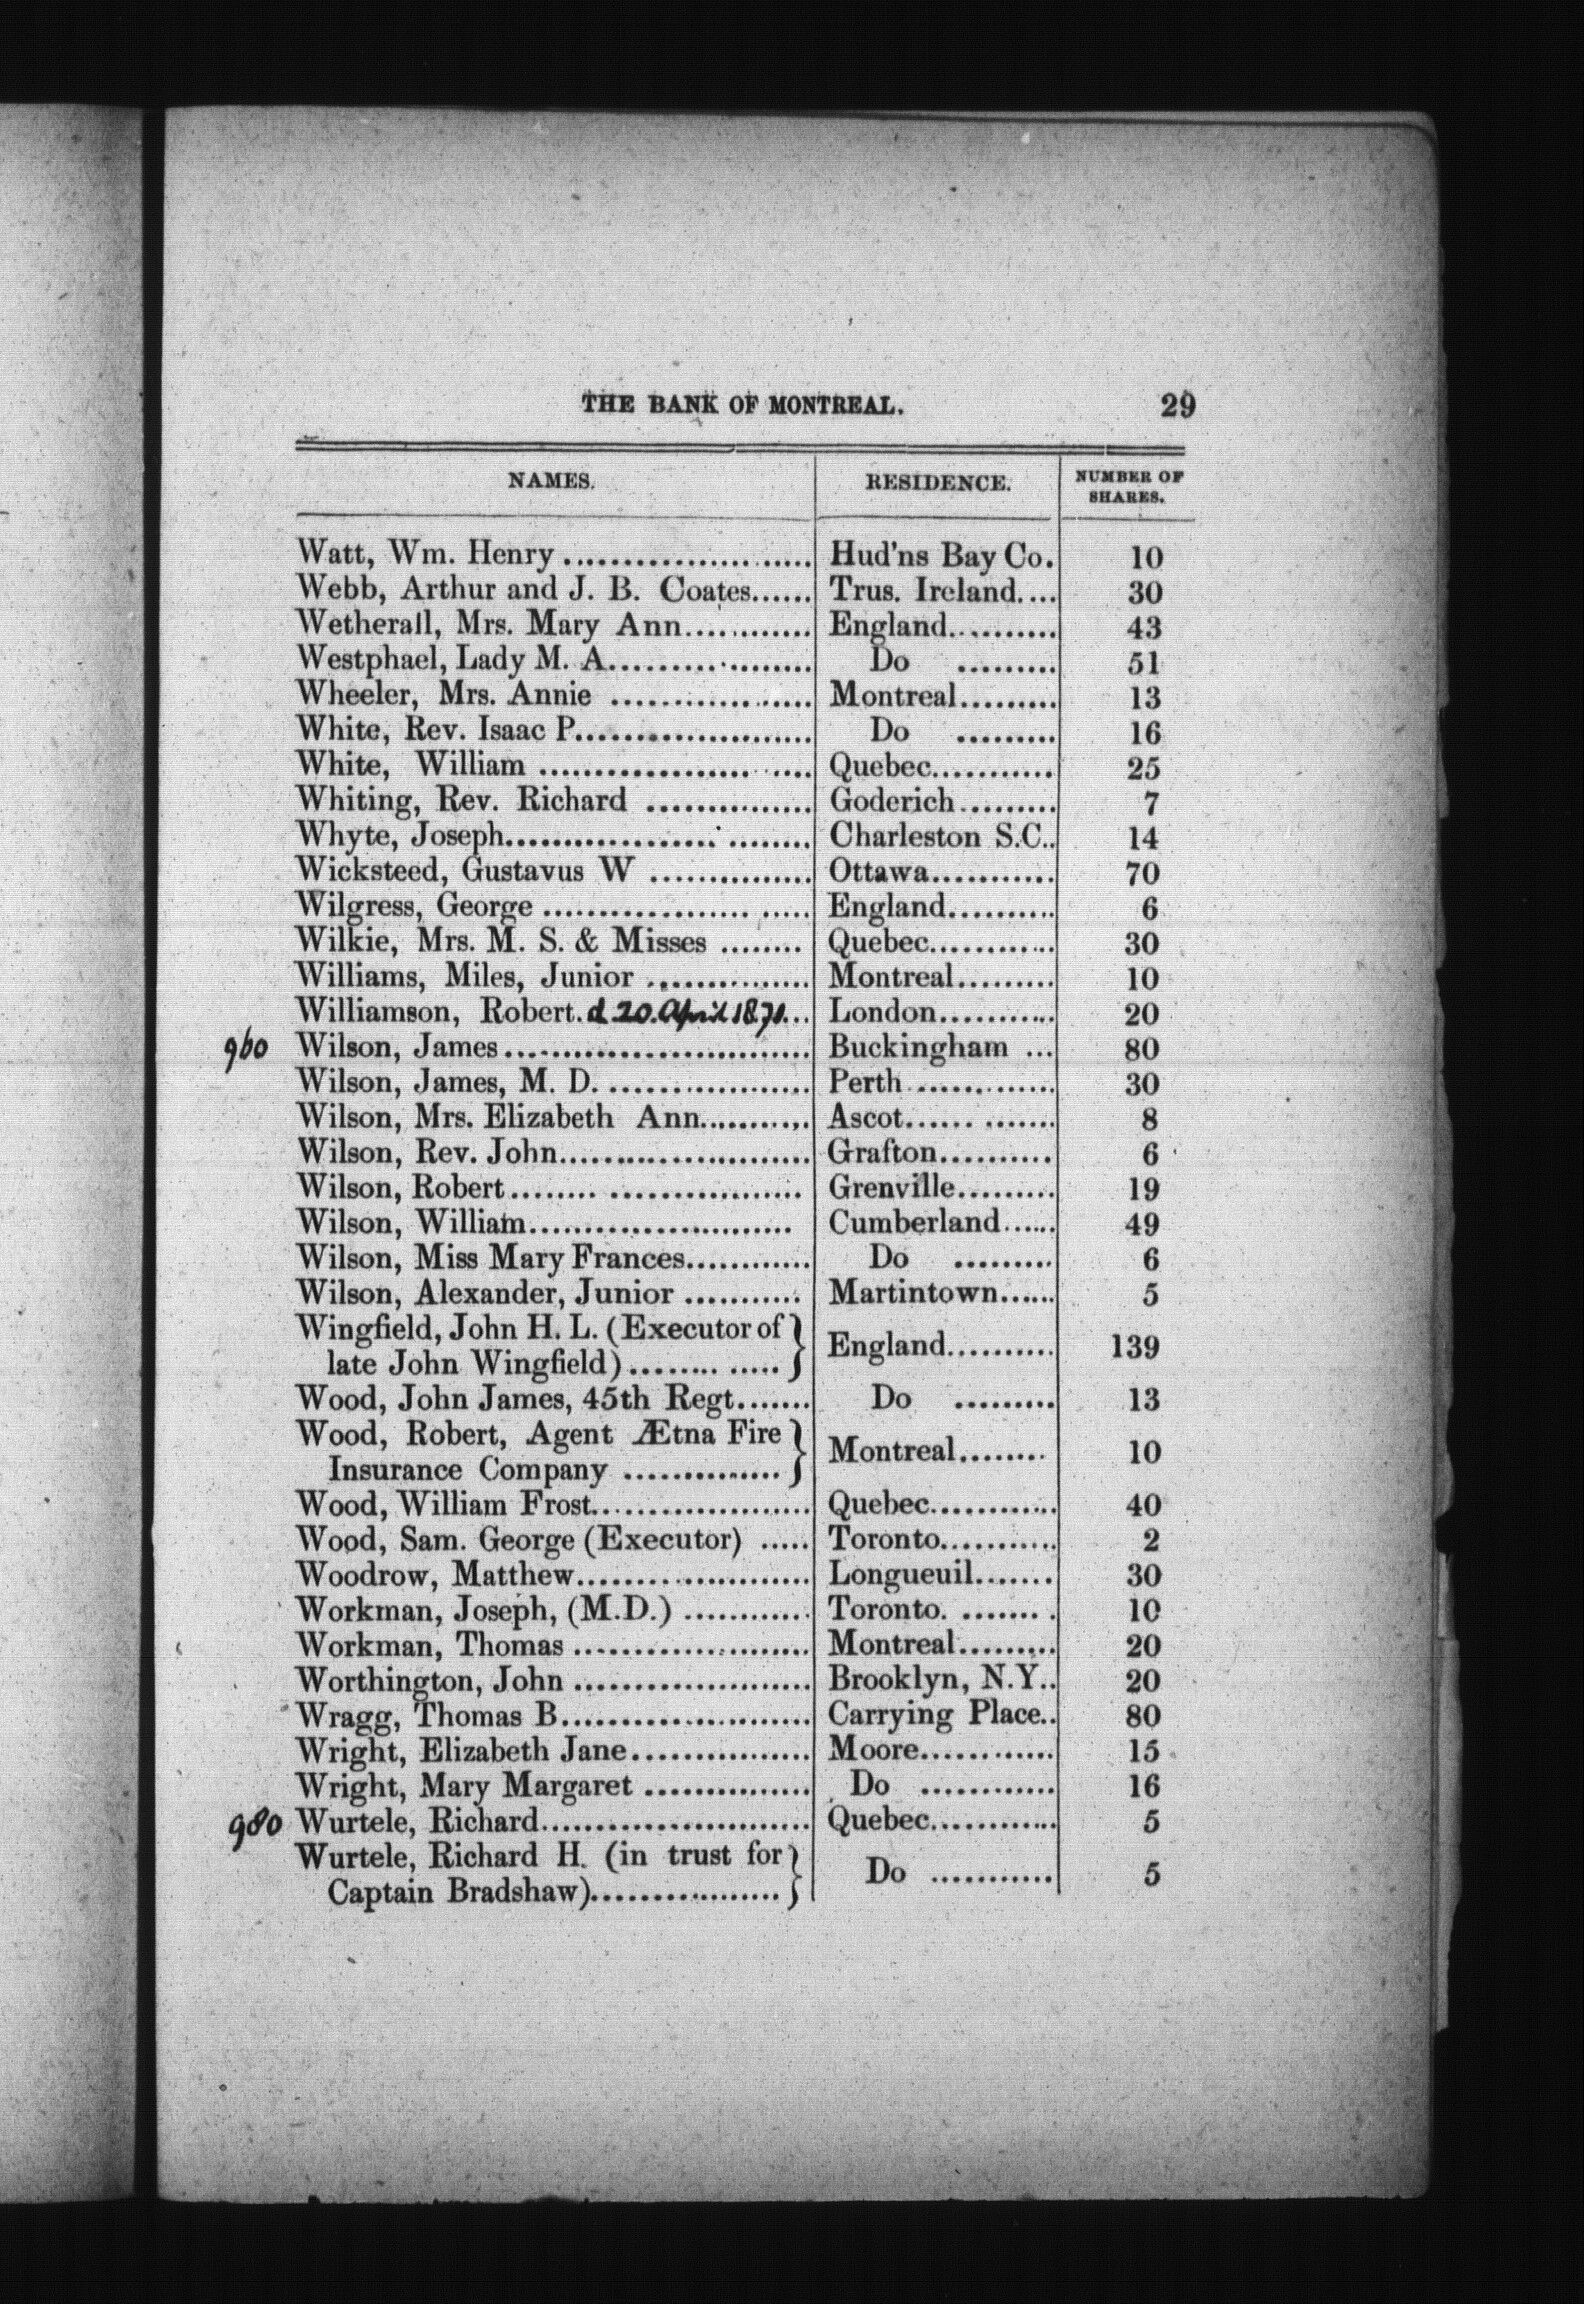 THE BANK OF MONTREAL. 29
NAMES. RESIDENCE. NUMBER OF SHARES.
Watt, Wm. Henry .................. Hud'ns Bay Co. 10
Webb, Arthur and J. B. Coates...... Trus. Ireland.... 30
Wetherall, Mrs. Mary Ann............ England.......... 43
Westphael, Lady M. A................. Do ......... 51
Wheeler, Mrs. Annie ................. Montreal......... 13
White, Rev. Isaac P.................... Do ......... 16
White, William ....................... Quebec........... 25
Whiting, Rev. Richard ............... Goderich......... 7
Whyte, Joseph......................... Charleston S.C.. 14
Wicksteed, Gustavus W ............... Ottawa........... 70
Wilgress, George ....................... England.......... 6
Wilkie, Mrs. M. S. & Misses ........ Quebec............ 30
Williams, Miles, Junior ............... Montreal......... 10
Williamson, Robert. d. 20. April 1870... London........... 20
960 Wilson, James............................ Buckingham ... 80
Wilson, James, M. D. .................. Perth ............. 30
Wilson, Mrs. Elizabeth Ann.......... Ascot............. 8
Wilson, Rev. John....................... Grafton.......... 6
Wilson, Robert........ ................. Grenville......... 19
Wilson, William........................ Cumberland...... 49
Wilson, Miss Mary Frances............ Do ......... 6
Wilson, Alexander, Junior ........... Martintown...... 5
Wingfield, John H. L. (Executor of
late John Wingfield)............. } England.......... 139
Wood, John James, 45th Regt....... Do ......... 13
Wood, Robert, Agent Ætna Fire
Insurance Company .............. } Montreal........ 10
Wood, William Frost.................... Quebec............ 40
Wood, Sam. George (Executor) ..... Toronto........... 2
Woodrow, Matthew...................... Longueuil....... 30
Workman, Joseph, (M.D.) ............ Toronto. ....... . 10
Workman, Thomas ..................... Montreal......... 20
Worthington, John ..................... Brooklyn, N.Y.. 20
Wragg, Thomas B....................... Carrying Place.. 80
Wright, Elizabeth Jane................ Moore............ 15
Wright, Mary Margaret ............... Do ............ 16
980 Wurtele, Richard......................... Quebec............ 5
Wurtele, Richard H. (in trust for
Captain Bradshaw)................. } Do ........... 5